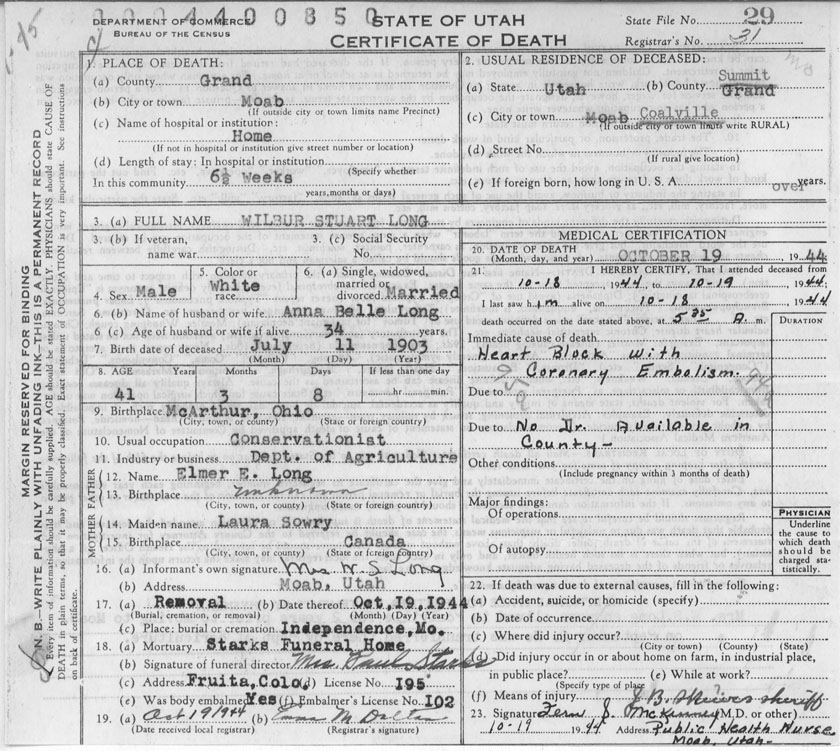 0004400850
DEPARTMENT OF COMMERCE
BUREAU OF THE CENSUS
STATE OF UTAH
CERTIFICATE OF DEATH
State File No. 29
Registrar's No. 31
MARGIN RESERVED FOR BINDING
N. B.—WRITE PLAINLY WITH UNFADING INK—THIS IS A PERMANENT RECORD
Every item of information should be carefully supplied. AGE should be stated EXACTLY. PHYSICIANS should state CAUSE OF
DEATH in plain terms, so that it may be properly classified. Exact statement of OCCUPATION is very important. See instructions
on back of certificate.
1. PLACE OF DEATH:
(a) County Grand
(b) City or town Moab
(If outside city or town limits name Precinct)
(c) Name of hospital or institution:
Home
(If not in hospital or institution give street number or location)
(d) Length of stay: In hospital or institution
(Specify whether
In this community 6½ Weeks
years, months or days)
2. USUAL RESIDENCE OF DECEASED:
Summit
(a) State Utah (b) County Grand
(c) City or town Moab Coalville
(If outside city or town limits write RURAL)
(d) Street No.
(If rural give location)
(e) If foreign born, how long in U. S. A. over years.
3. (a) FULL NAME WILBUR STUART LONG
3. (b) If veteran,
name war
3. (c) Social Security
No.
4. Sex Male
5. Color or
race White
6. (a) Single, widowed,
married or
divorced Married
6. (b) Name of husband or wife Anna Belle Long
6 (c) Age of husband or wife if alive 34 years.
7. Birth date of deceased July 11 1903
(Month) (Day) (Year)
8. AGE Years Months Days If less than one day
41 3 8 hr. min.
9. Birthplace McArthur, Ohio
(City, town, or county) (State or foreign country)
10. Usual occupation Conservationist
11. Industry or business Dept. of Agriculture
FATHER
12. Name Elmer E. Long
13. Birthplace unknown
(City, town, or county) (State or foreign country)
MOTHER
14. Maiden name Laura Sowry
15. Birthplace Canada
(City, town, or county) (State or foreign country)
16. (a) Informant's own signature Mrs. W S Long
(b) Address Moab, Utah
17. (a) Removal (b) Date thereof Oct, 19, 1944
(Burial, cremation, or removal) (Month) (Day) (Year)
(c) Place: burial or cremation Independence, Mo.
18. (a) Mortuary Starks Funeral Home
(b) Signature of funeral director Mrs. Paul Starks
(c) Address Fruita, Colo. (d) License No. 195
(e) Was body embalmed Yes (f) Embalmer's License No. 102
19. (a) Oct 19 1944 (b) Emma M
(Date received local registrar) (Registrar's signature)
MEDICAL CERTIFICATION
20. DATE OF DEATH
(Month, day, and year) OCTOBER 19, 1944
21. I HEREBY CERTIFY, That I attended deceased from
10-18, 1944, to 10-19, 1944;
I last saw him alive on 10-18, 1944
death occurred on the date stated above, at 5 35 A. m.
DURATION
Immediate cause of death
Heart Block with
Coronary Embolism.
Due to
Due to No Dr. Available in
County—
Other conditions
(Include pregnancy within 3 months of death)
Major findings:
Of operations
Of autopsy
PHYSICIAN
Underline
the cause to
which death
should be
charged sta-
tistically.
22. If death was due to external causes, fill in the following:
(a) Accident, suicide, or homicide (specify)
(b) Date of occurrence
(c) Where did injury occur?
(City or town) (County) (State)
(d) Did injury occur in or about home on farm, in industrial place,
in public place? (e) While at work?
(Specify type of place)
(f) Means of injury J. B. Skewes sheriff
23. Signature Fern J. McKinney (M.D. or other)
10-19 1944 Address Public Health Nurse
Moab, Utah-